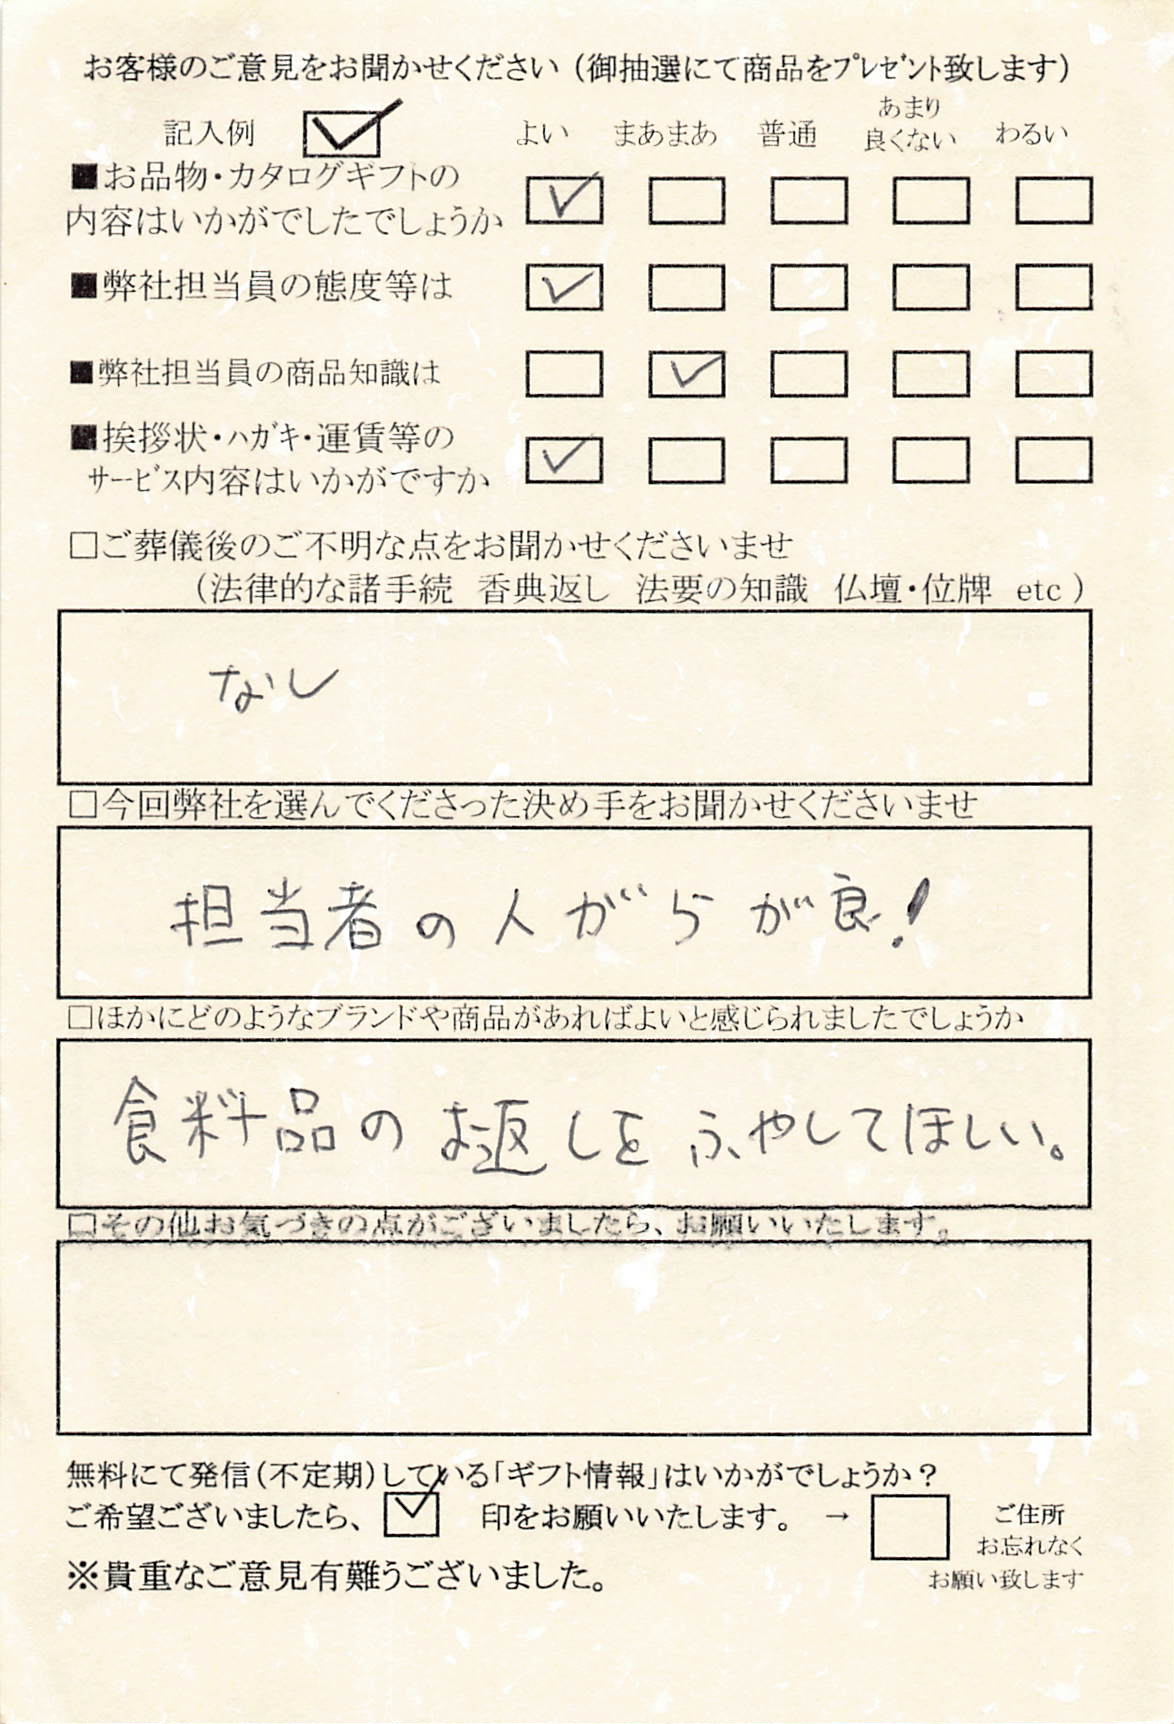 お客様のご意見をお聞かせください（御抽選にて商品をﾌﾟﾚｾﾞﾝﾄ致します）
記入例 ☑ よい まあまあ 普通 あまり良くない わるい
■お品物・カタログギフトの
内容はいかがでしたでしょうか ☑ □ □ □ □
■弊社担当員の態度等は ☑ □ □ □ □
■弊社担当員の商品知識は □ ☑ □ □ □
■挨拶状・ﾊｶﾞｷ・運賃等の
ｻｰﾋﾞｽ内容はいかがですか ☑ □ □ □ □
□ご葬儀後のご不明な点をお聞かせくださいませ
（法律的な諸手続 香典返し 法要の知識 仏壇・位牌 etc）
なし
□今回弊社を選んでくださった決め手をお聞かせくださいませ
担当者の人がらが良!
□ほかにどのようなブランドや商品があればよいと感じられましたでしょうか
食料品のお返しをふやしてほしい。
□その他お気づきの点がございましたら、お願いいたします。
無料にて発信（不定期）している「ギフト情報」はいかがでしょうか？
ご希望ございましたら、☑ 印をお願いいたします。 → □ ご住所
お忘れなく
※貴重なご意見有難うございました。
お願い致します